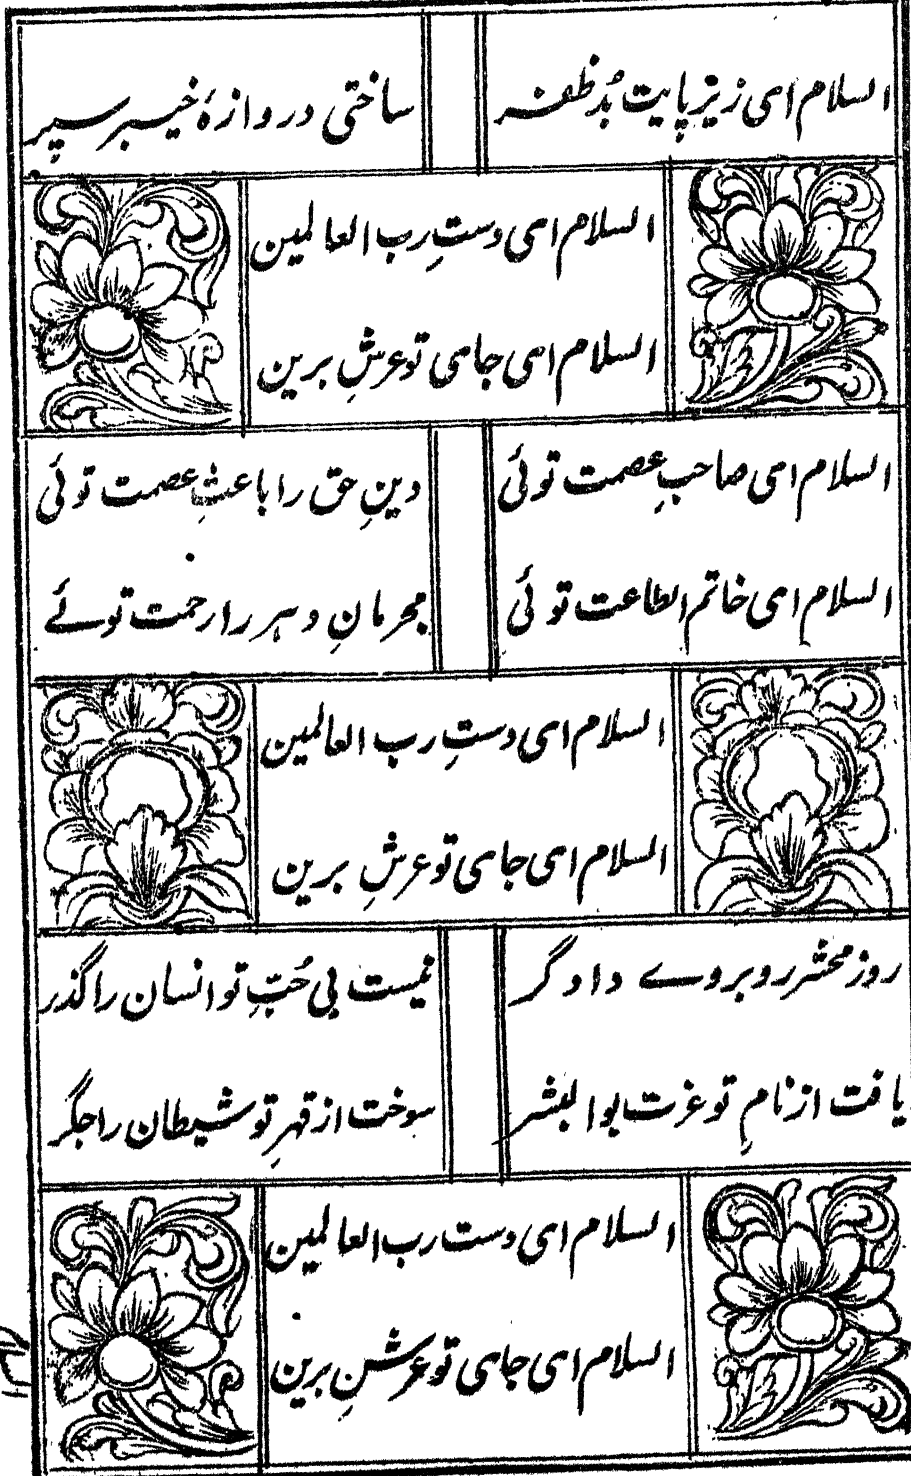 السلام ای زیر پایت بُد ظفر
ساختی دروازۂ خیبر سپر
السلام ای دستِ رب العالمین
السلام ای جای تو عرشِ برین
السلام ای صاحبِ عصمت توئی
دینِ حق را باعثِ عصمت توئی
السلام ای خاتم الطاعت توئی
مجرمانِ دهر را رحمت توئے
السلام ای دستِ رب العالمین
السلام ای جای تو عرشِ برین
روز محشر روبروے دادگر
نیست بی حُبِّ تو انسان را گذر
یافت از نامِ تو عزت بوالبشر
سوخت از قهرِ تو شیطان را جگر
السلام ای دست رب العالمین
السلام ای جای تو عرشِ برین